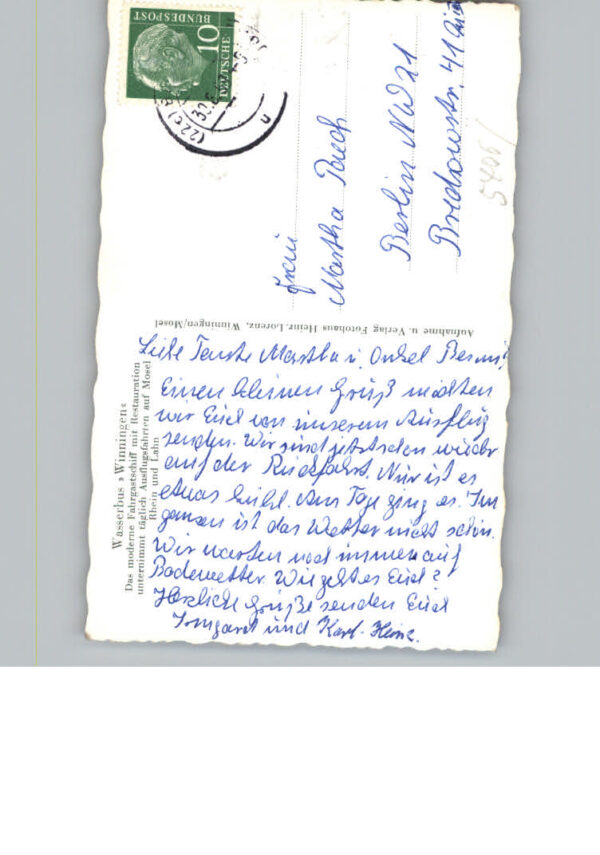 Liebe Tante Martha u. Onkel
Einen kleinen Gruß möchten
wir Euch von unserem Ausflug
senden. Wir sind jetzt schon wieder
auf der Rückfahrt. Nur ist es
etwas kühl. Am Tage ging es. Im
ganzen ist das Wetter nicht schön.
Wir warten noch immer auf
Badewetter. Wie geht es Euch?
Herzliche Grüße senden Euch
Irmgard und Karl-Heinz.
Wasserbus »Winningen«
Das moderne Fahrgastschiff mit Restauration
unternimmt täglich Ausflugsfahrten auf Mosel
Rhein und Lahn
Aufnahme u. Verlag Fotohaus Heinr. Lorenz, Winningen/Mosel
Frau
Martha
Berlin NW 21
Bredowstr. 41
DEUTSCHE
BUNDESPOST
10
(22c)